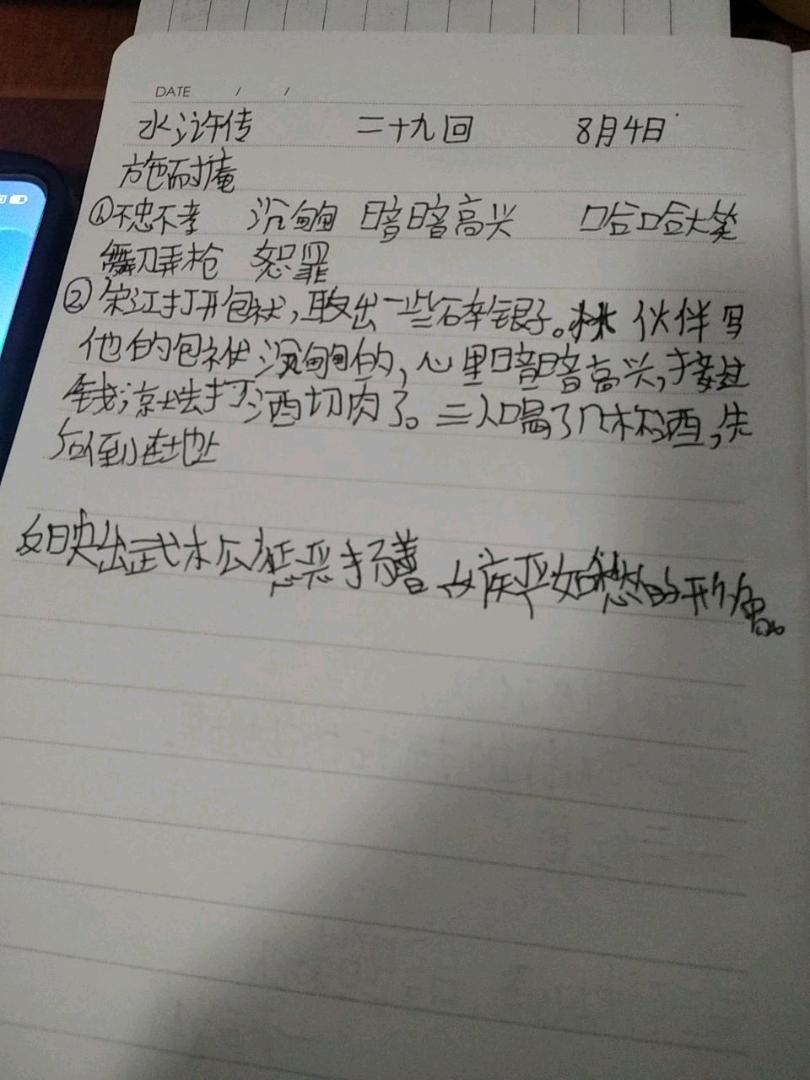 DATE / /
水浒传 二十九回 8月4日
施耐庵
①不忠不孝 沉甸甸 暗暗高兴 哈哈大笑
舞刀弄枪 恕罪
②宋江打开包袱,取出一些碎银子。 伙伴写
他的包袱沉甸甸的,心里暗暗高兴,接过
钱就去打酒切肉了。三人喝了几杯酒,先
后倒在地
反映出武松惩恶扬善 疾恶如愁的形象。